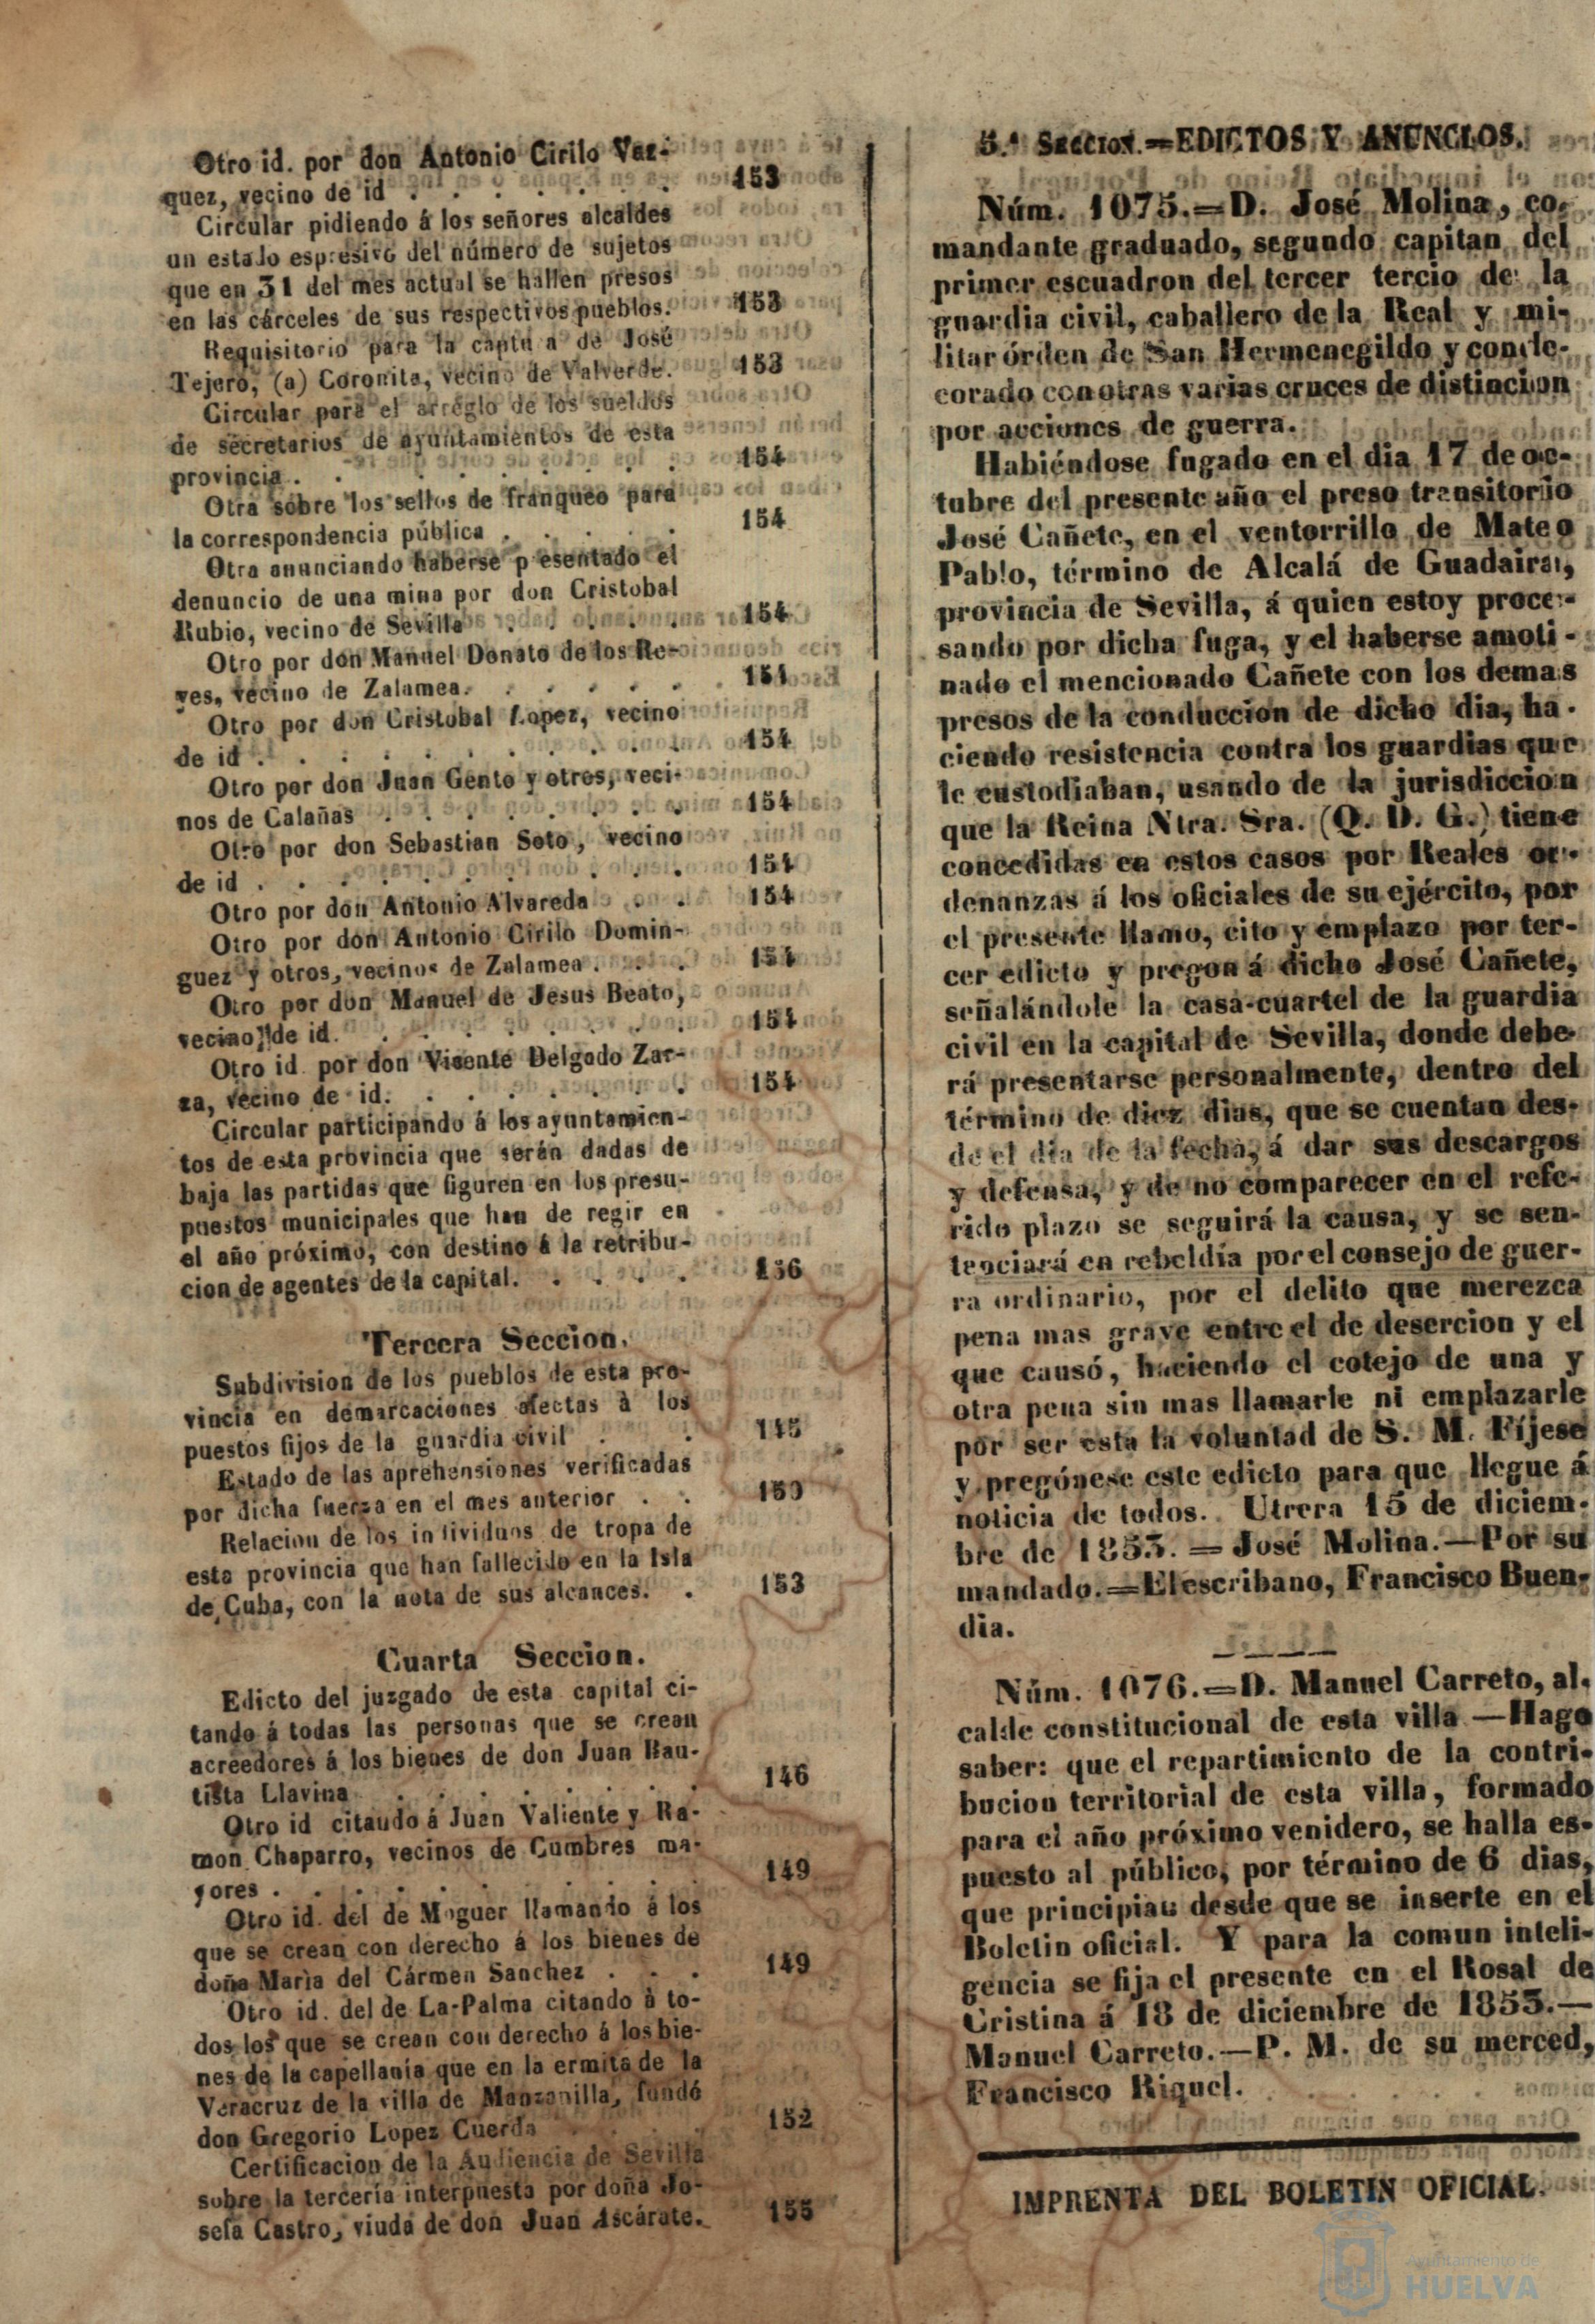 Otro id. por don Antonio Cirilo Vaz-
quez, vecino de id . . . . . . . 153
Circular pidiendo á los señores alcaldes
un estado espresivo del número de sujetos
que en 31 del mes actual se hallen presos
en las cárceles de sus respectivos pueblos. 153
Requisitorio para la captu a de José
Tejero, (a) Coronita, vecino de Valverde. 153
Circular para el arreglo de los sueldos
de secretarios de ayuntamientos de esta
provincia . . . . . . . . . 154
Otra sobre los sellos de franqueo para
la correspondencia pública . . . . . 154
Otra anunciando haberse p esentado el
denuncio de una mina por don Cristobal
Rubio, vecino de Sevilla . . . . . 154
Otro por don Manuel Donato de los Re-
yes, vecino de Zalamea. . . . . . . 154
Otro por don Cristobal Lopez, vecino
de id . . . . . . . . . . . 154
Otro por don Juan Gento y otros, veci-
nos de Calañas . . . . . . . . 154
Otro por don Sebastian Soto, vecino
de id . . . . . . . . . . . 154
Otro por don Antonio Alvareda . . 154
Otro por don Antonio Cirilo Domin-
guez y otros, vecinos de Zalamea . . . 154
Otro por don Manuel de Jesus Beato,
vecino de id. . . . . . . . . 154
Otro id. por don Vicente Delgado Zar-
za, vecino de id. . . . . . . . 154
Circular participando á los ayuntamien-
tos de esta provincia que serán dadas de
baja las partidas que figuren en los presu-
puestos municipales que han de regir en
el año próximo, con destino á la retribu-
cion de agentes de la capital. . . . . 156
Tercera Seccion.
Subdivision de los pueblos de esta pro-
vincia en demarcaciones afectas à los
puestos fijos de la guardia civil . . 145
Estado de las aprehensiones verificadas
por dicha fuerza en el mes anterior . . 150
Relacion de los individuos de tropa de
esta provincia que han fallecido en la Isla
de Cuba, con la nota de sus alcances. . 153
Cuarta Seccion.
Edicto del juzgado de esta capital ci-
tando á todas las personas que se crean
acreedores á los bienes de don Juan Bau-
tista Llavina . . . . . . . 146
Otro id citando á Juan Valiente y Ra-
mon Chaparro, vecinos de Cumbres ma-
yores . . . . . . . . . . 149
Otro id. del de Moguer llamando á los
que se crean con derecho á los bienes de
doña Marìa del Cármen Sanchez . . . 149
Otro id. del de La-Palma citando à to-
dos los que se crean con derecho á los bie-
nes de la capellanía que en la ermita de la
Veracruz de la villa de Manzanilla, fundó
don Gregorio Lopez Cuerda . . . . 152
Certificacion de la Audiencia de Sevilla
sobre la tercería interpuesta por doña Jo-
sefa Castro, viuda de don Juan Ascárate. 155
5.ª Seccion.=EDICTOS Y ANUNCIOS.
Núm. 1075.=D. José Molina, co-
mandante graduado, segundo capitan del
primer escuadron del tercer tercio de la
guardia civil, caballero de la Real y mi-
litar órden de San Hermenegildo y conde-
corado con otras varias cruces de distincion
por acciones de guerra.
Habiéndose fugado en el dia 17 de oc-
tubre del presente año el preso transitorio
José Cañete, en el ventorrillo de Mateo
Pablo, término de Alcalá de Guadaira,
provincia de Sevilla, á quien estoy proce-
sando por dicha fuga, y el haberse amoti-
nado el mencionado Cañete con los demas
presos de la conduccion de dicho dia, ha-
ciendo resistencia contra los guardias que
le custodiaban, usando de la jurisdiccion
que la Reina Ntra. Sra. (Q. D. G.) tiene
concedidas en estos casos por Reales or-
denanzas á los oficiales de su ejército, por
el presente llamo, cito y emplazo por ter-
cer edicto y pregon á dicho José Cañete,
señalándole la casa-cuartel de la guardia
civil en la capital de Sevilla, donde debe-
rá presentarse personalmente, dentro del
término de diez dias, que se cuentan des-
de el dia de la fecha, á dar sus descargos
y defensa, y de no comparecer en el refe-
rido plazo se seguirá la causa, y se sen-
tenciará en rebeldía por el consejo de guer-
ra ordinario, por el delito que merezca
pena mas grave entre el de desercion y el
que causó, haciendo el cotejo de una y
otra pena sin mas llamarle ni emplazarle
por ser esta la voluntad de S. M. Fíjese
y pregónese este edicto para que llegue á
noticia de todos. Utrera 15 de diciem-
bre de 1853. = José Molina.—Por su
mandado.=El escribano, Francisco Buen-
dia.
Núm. 1076.=D. Manuel Carreto, al-
calde constitucional de esta villa —Hago
saber: que el repartimiento de la contri-
bucion territorial de esta villa, formado
para el año próximo venidero, se halla es-
puesto al público, por término de 6 dias,
que principian desde que se inserte en el
Boletin oficial. Y para la comun inteli-
gencia se fija el presente en el Rosal de
Cristina á 18 de diciembre de 1853.—
Manuel Carreto.—P. M. de su merced,
Francisco Riquel.
IMPRENTA DEL BOLETIN OFICIAL.
Ayuntamiento de
HUELVA